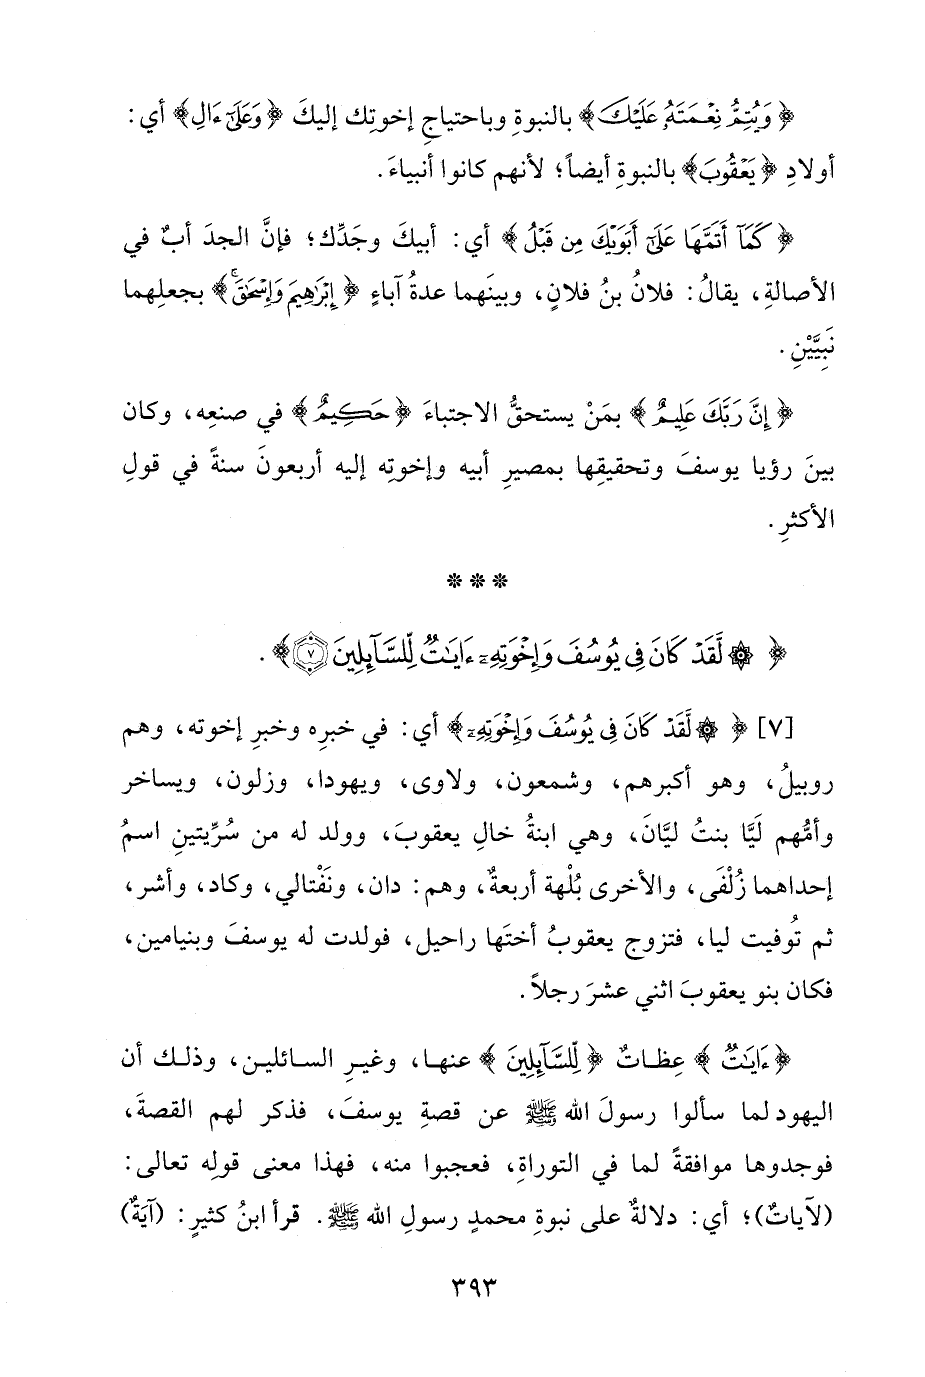 ﴿وَيُتِمُّ نِعْمَتَهُۥ عَلَيْكَ﴾ بالنبوةِ وباحتياجِ إخوتِك إليكَ ﴿وَعَلَىٰٓ ءَالِ﴾ أي:
أولادِ ﴿يَعْقُوبَ﴾ بالنبوةِ أيضاً؛ لأنهم كانوا أنبياءَ.
﴿كَمَآ أَتَمَّهَا عَلَىٰٓ أَبَوَيْكَ مِن قَبْلُ﴾ أي: أبيكَ وجَدِّك؛ فإنَّ الجدَ أبٌ في
الأصالةِ، يقالُ: فلانُ بنُ فلانٍ، وبينَهما عدةُ آباءٍ ﴿إِبْرَٰهِيمَ وَإِسْحَٰقَۚ﴾ بجعلِهما
نَبِيَّيْنِ.
﴿إِنَّ رَبَّكَ عَلِيمٌ﴾ بمَنْ يستحقُّ الاجتباءَ ﴿حَكِيمٌ﴾ في صنعِه، وكان
بينَ رؤيا يوسفَ وتحقيقِها بمصيرِ أبيه وإخوتِه إليه أربعونَ سنةً في قولِ
الأكثرِ.
* * *
﴿۞ لَّقَدْ كَانَ فِى يُوسُفَ وَإِخْوَتِهِۦٓ ءَايَٰتٌ لِّلسَّآئِلِينَ ٧﴾.
[٧] ﴿۞ لَّقَدْ كَانَ فِى يُوسُفَ وَإِخْوَتِهِۦٓ﴾ أي: في خبرِه وخبرِ إخوته، وهم
روبيلُ، وهو أكبرهم، وشمعون، ولاوى، ويهودا، وزلون، ويساخر
وأمُّهم لَيَّا بنتُ ليَّانَ، وهي ابنةُ خالِ يعقوبَ، وولد له من سُرِّيتينِ اسمُ
إحداهما زُلْفَى، والأخرى بُلْهة أربعةٌ، وهم: دان، ونَفْتالي، وكاد، وأشر،
ثم تُوفيت ليا، فتزوج يعقوبُ أختَها راحيل، فولدت له يوسفَ وبنيامين،
فكان بنو يعقوبَ اثني عشرَ رجلاً.
﴿ءَايَٰتٌ﴾ عِظاتٌ ﴿لِّلسَّآئِلِينَ﴾ عنها، وغيرِ السائلين، وذلك أن
اليهود لما سألوا رسولَ الله ﷺ عن قصةِ يوسفَ، فذكر لهم القصةَ،
فوجدوها موافقةً لما في التوراةِ، فعجبوا منه، فهذا معنى قولِه تعالى:
(لآياتٌ)؛ أي: دلالةٌ على نبوةِ محمدٍ رسولِ الله ﷺ. قرأ ابنُ كثيرٍ: (آيَةٌ)
٣٩٣